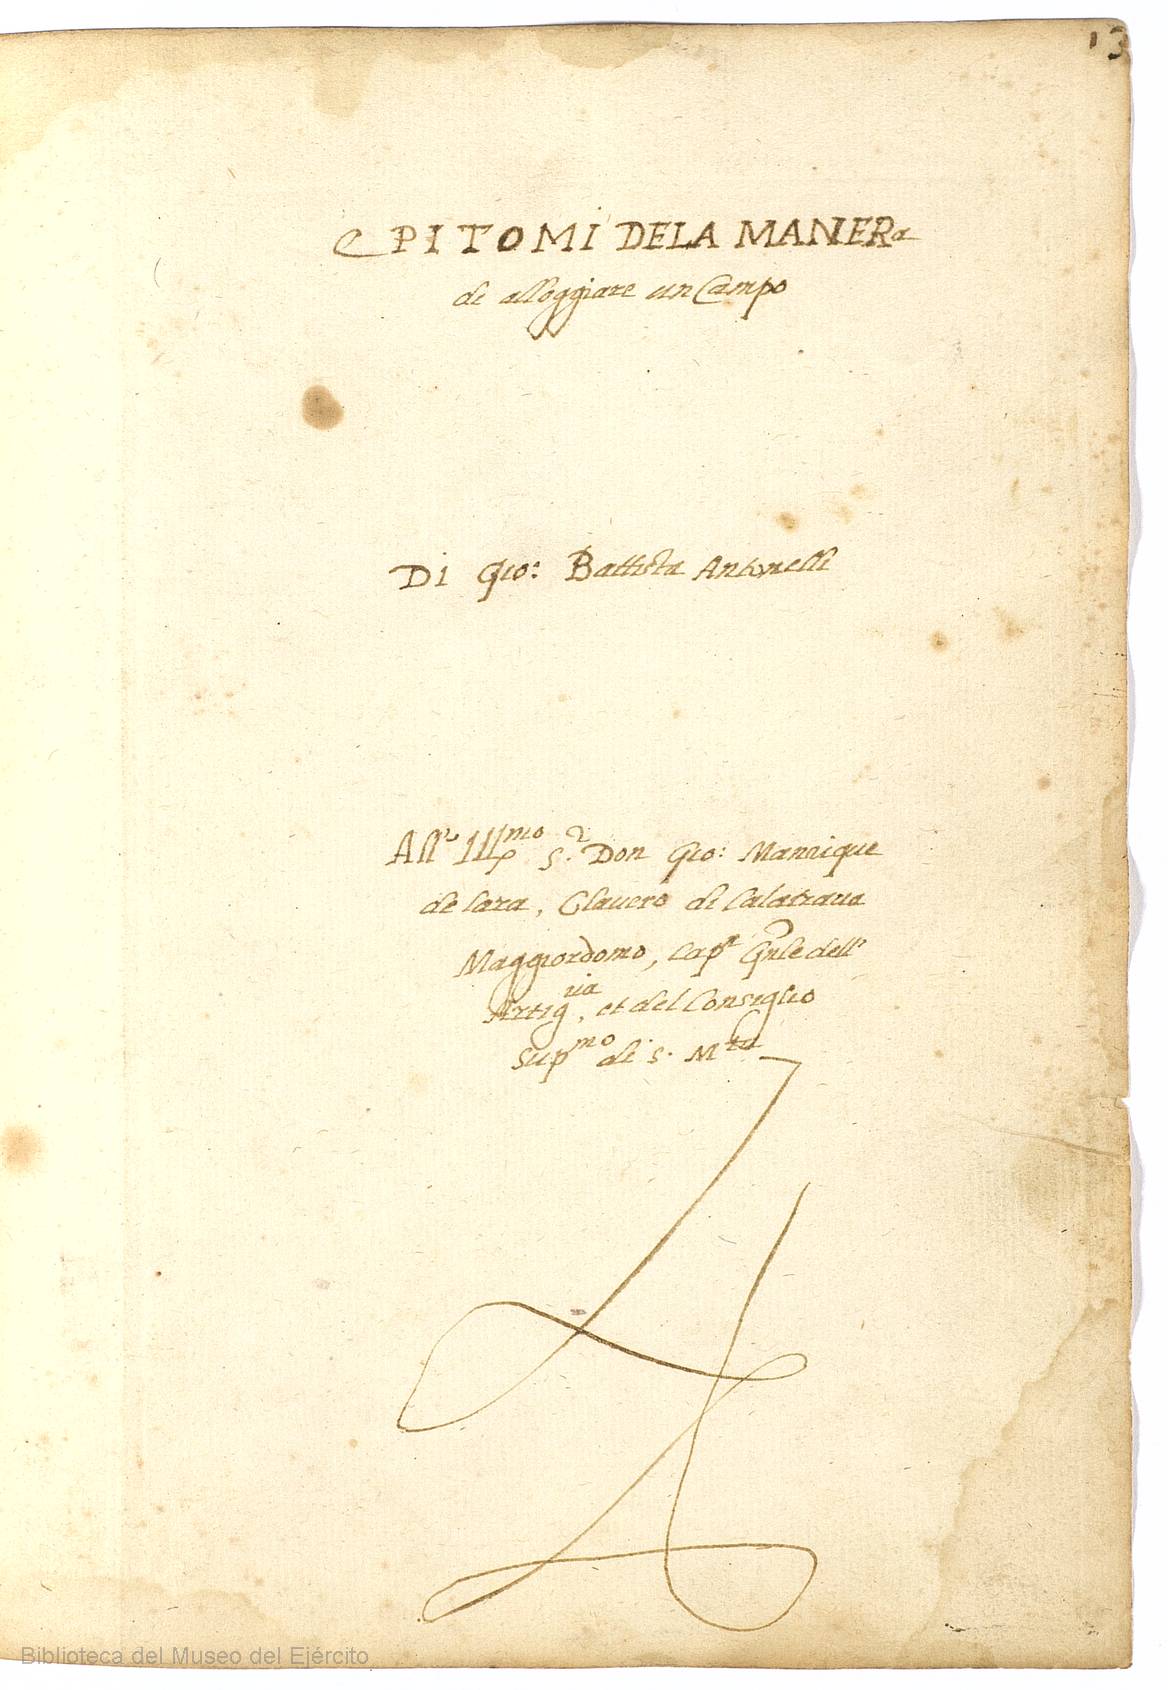 13
EPITOMI DELA MANIERa
di alloggiare un Campo
DI Gio: Battista Antonelli
All' Illmo S.r Don Gio: Manrique
de Lara, Clavero di Calatrava
Maggiordomo, Capn Gnle dell'
Artigria, et del Consiglio
Supmo di S. Mtà
Biblioteca del Museo del Ejército